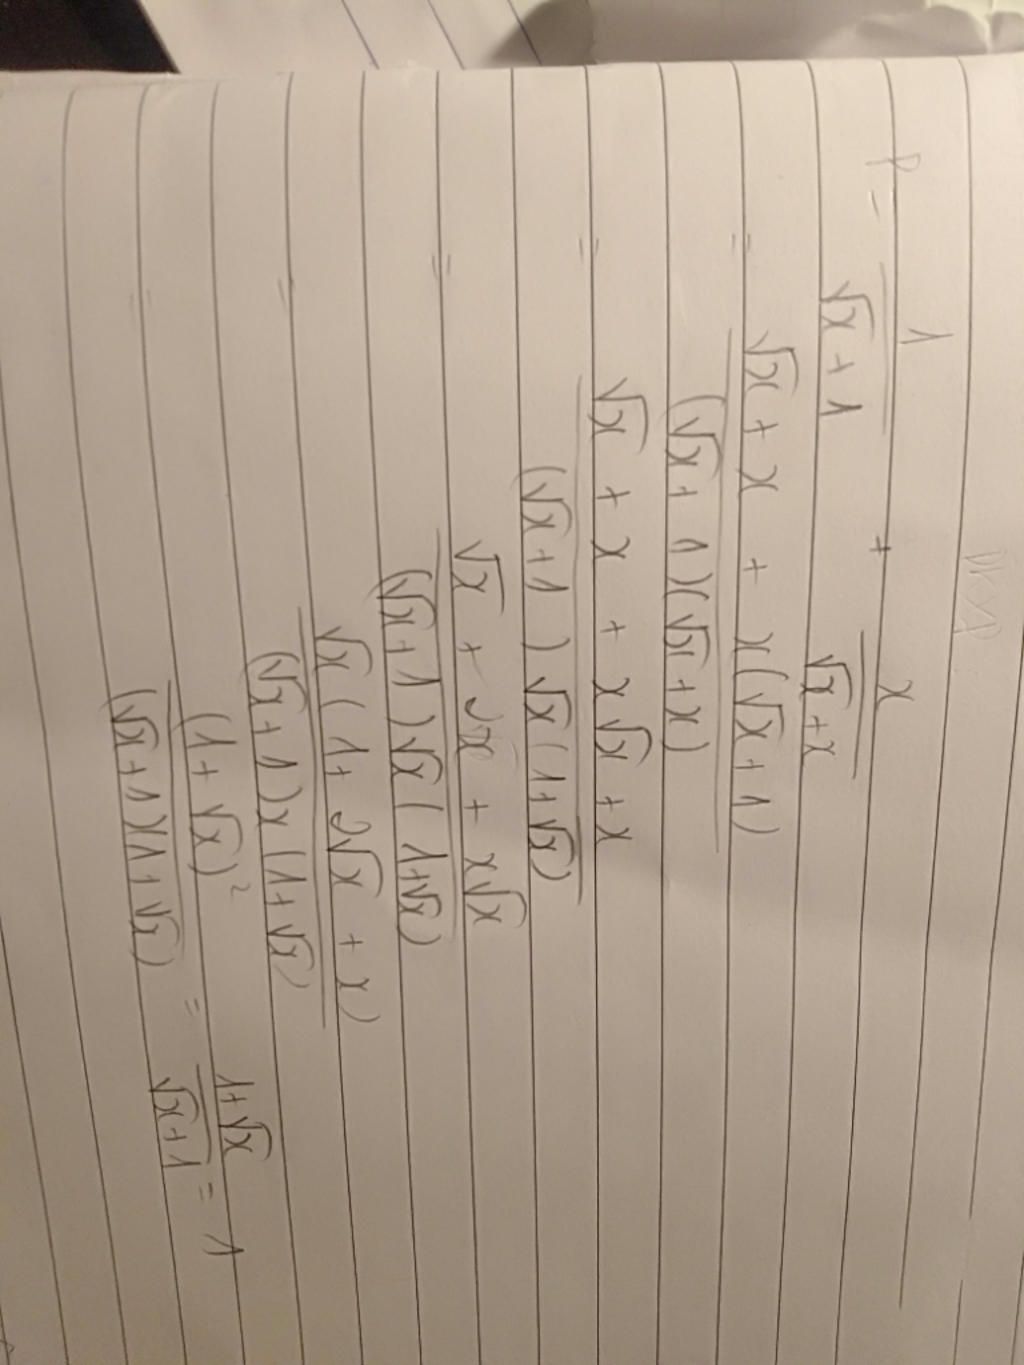 P = 1/(√x + 1) + x/(√x + x)
= (√x + x + x(√x + 1))/((√x + 1)(√x + x))
= (√x + x + x√x + x)/((√x + 1)√x(1 + √x))
= (√x + 2x + x√x)/((√x + 1)√x(1 + √x))
= (√x(1 + 2√x + x))/((√x + 1)x(1 + √x))
= (1 + √x)²/((√x + 1)(1 + √x)) = (1 + √x)/(√x + 1) = 1